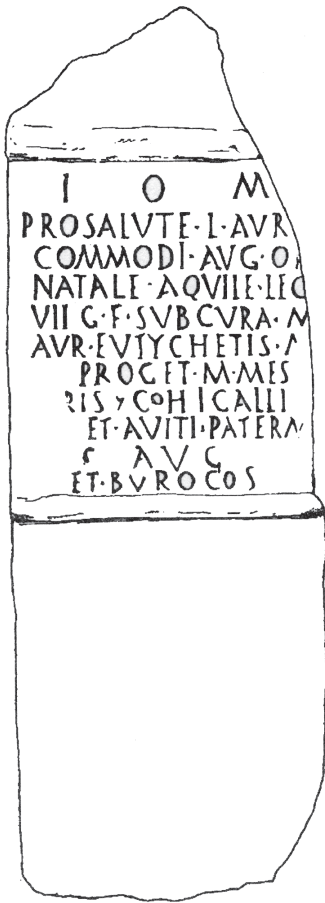 I O M
PRO SALVTE · L · AVR
COMMODI · AVG · O
NATALE · AQVILE · LEG
VII G · F · SVB CVRA · M
AVR · EVTYCHETIS ·
PROC ET · M · MES
RIS 7 COH I CALLI
ET · AVITI · PATERN
AVG
ET · BVROCOS